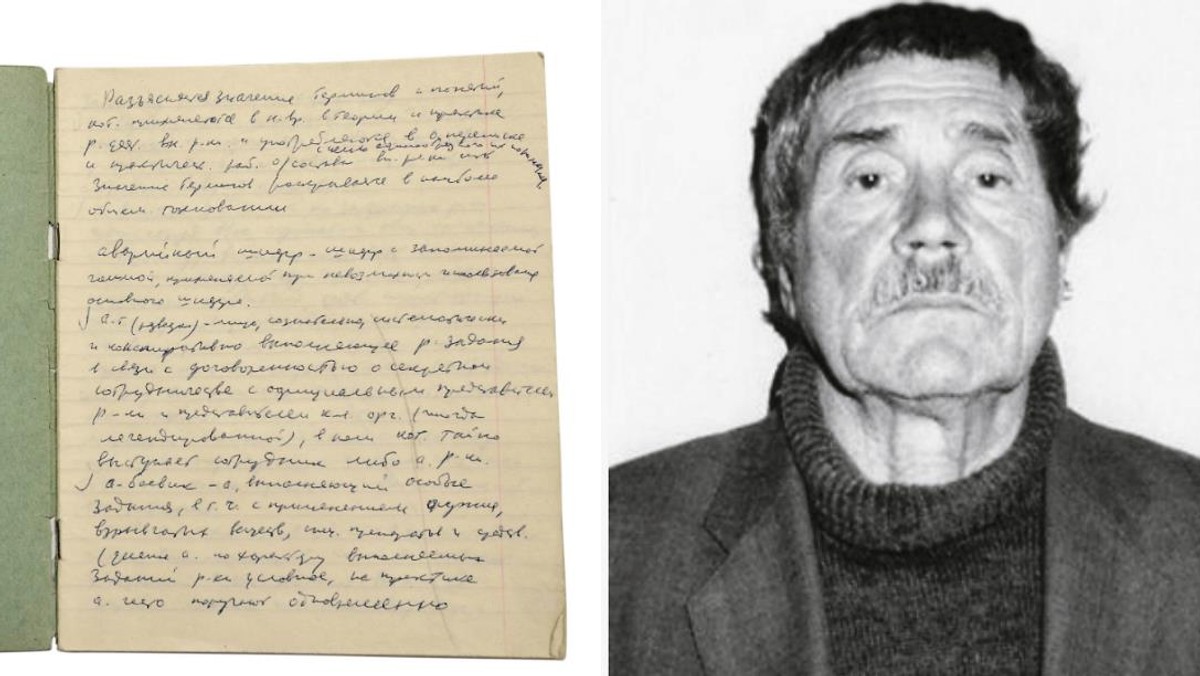 Разъясняется значение терминов и понятий,
кот. применяются в н.вр. в теории и практике
р. деят. вн. р-ки. и употребляются в о переписке
с целью единообразного их
и практическ. раб. о/состава вн. р-ки
значение терминов раскрывается в наиболее
общем толковании
аварийный шифр - шифр с запоминаемой
гаммой, применяемой при невозможн. использования
основного шифра.
а-т (разведки) - лицо, сознательно, систематически
и конспиративно выполняющее р. задания
в связи с договоренностью о секретном
сотрудничестве с официальным представителем
р-ки и представителем к-л. орг. (иногда
легендированной), в кач. кот. тайно
выступает сотрудник либо а. р-ки.
а-боевик - а, выполняющий особые
задания, в т.ч. с применением оружия,
взрывчатых веществ, спец. препаратов и средств.
(деление а. по характеру выполняемых
заданий р-ки условное, на практике
а. часто поручают одновременно